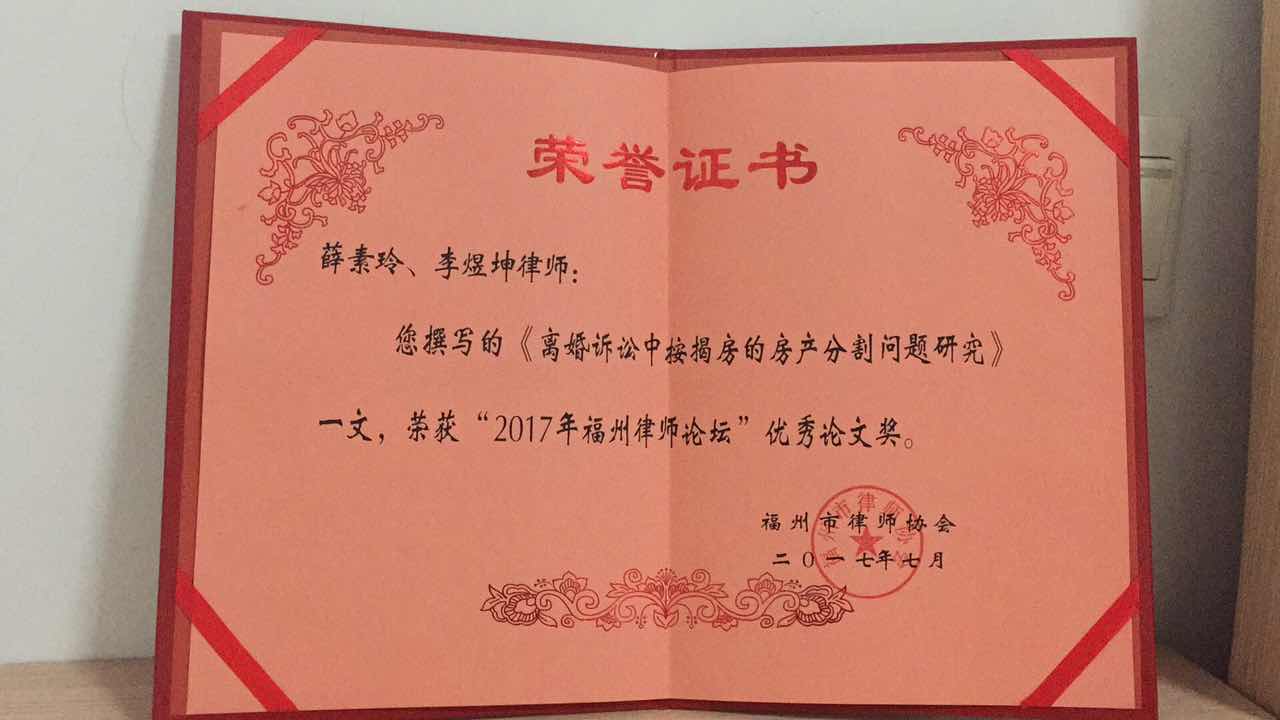 荣誉证书
薛素玲、李煜坤律师：
您撰写的《离婚诉讼中按揭房的房产分割问题研究》
一文，荣获“2017年福州律师论坛”优秀论文奖。
福州市律师协会
二〇一七年七月
福州市律师协会